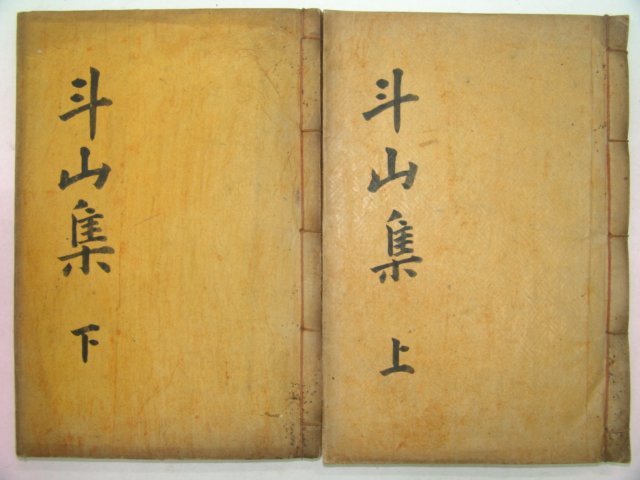 斗山集 上
斗山集 下